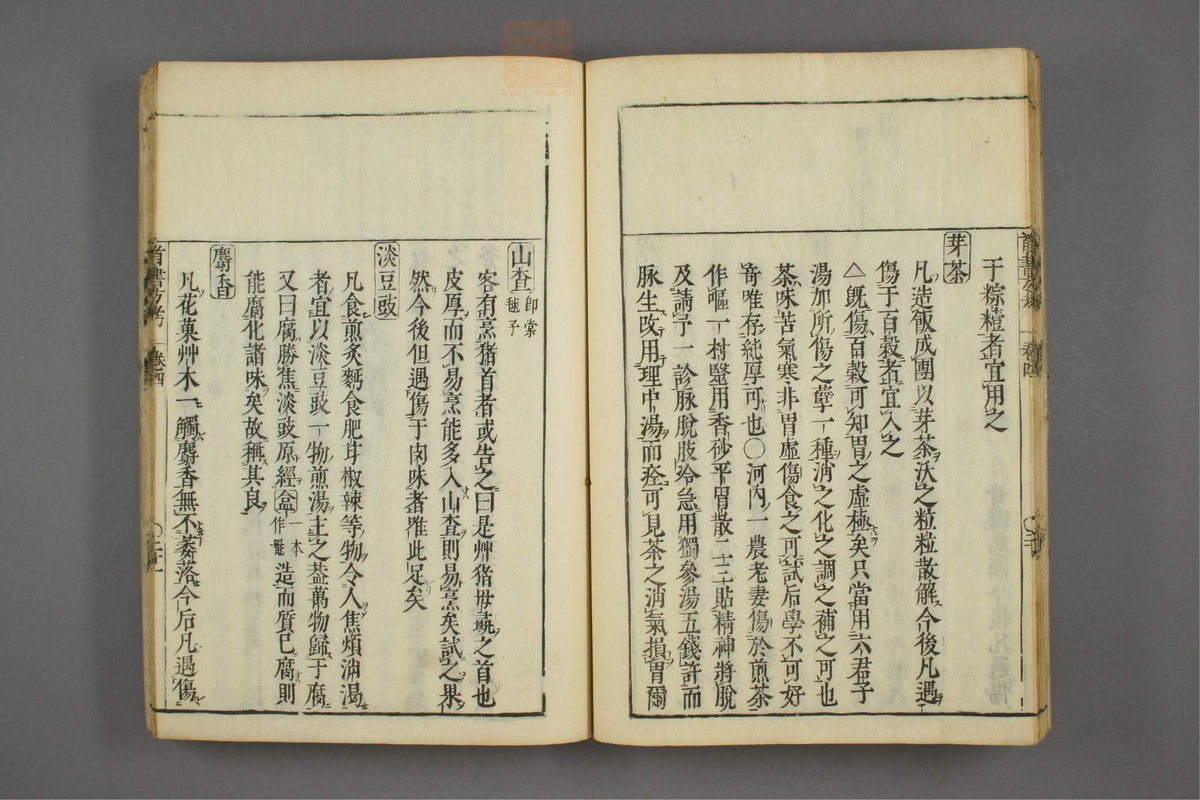 于粽𥻨者宜用之
芽茶
凡造飯成團以芽茶沃之粒粒散解今後凡遇
傷于百穀者宜入之
△既傷百穀可知胃之虛極矣只當用六君子
湯加所傷之孽一種消之化之調之補之可也
茶味苦氣寒非胃虛傷食之可試后學不可好
竒唯存純厚可也○河內一農老妻傷於煎茶
作嘔一村毉用香砂平胃散二三貼精神將脫
及請予一診脉脫肢冷急用獨參湯五錢許而
脉生改用理中湯而痊可見茶之消氣損胃爾
山査 卽棠毬子
客有烹猪首者或告之曰是艸猪母之首也
皮厚而不易烹能多入山査則易烹矣試之果
然今後但遇傷于肉味者唯此足矣
淡豆豉
凡食煎炙麪食肥甘椒辣等物令人焦煩消渴
者宜以淡豆豉一物煎湯主之葢萬物歸于腐
又曰腐勝焦淡豉原經盒 一本作 造而質已腐則
能腐化諸味矣故稱其良
麝香
凡花菓艸木一觸麝香無不萎落今后凡遇傷
首書方考 卷四